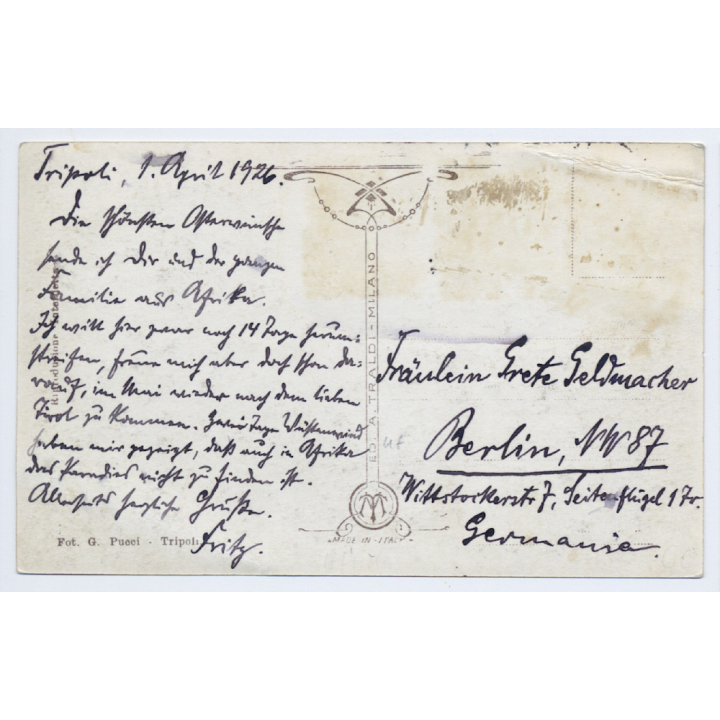 Tripoli, 1. April 1926.
Die schönsten Osterwünsche
sende ich Dir und der ganzen
Familie aus Afrika.
Ich will hier zwar noch 14 Tage herum-
streifen, freue mich aber doch schon da-
rauf, im Mai wieder nach dem lieben
Tirol zu kommen. Zwei Tage Wüstenwind
haben mir gezeigt, daß auch in Afrika
das Paradies nicht zu finden ist.
Allerseits herzliche Grüße.
Fritz.
Fot. G. Pucci - Tripoli
Riproduzione
ED. A. TRALDI - MILANO
MADE IN ITALY
Fräulein Grete Geldmacher
Berlin, NW 87
Wittstockerstr 7, Seitenflügel 1 Tr.
Germania.